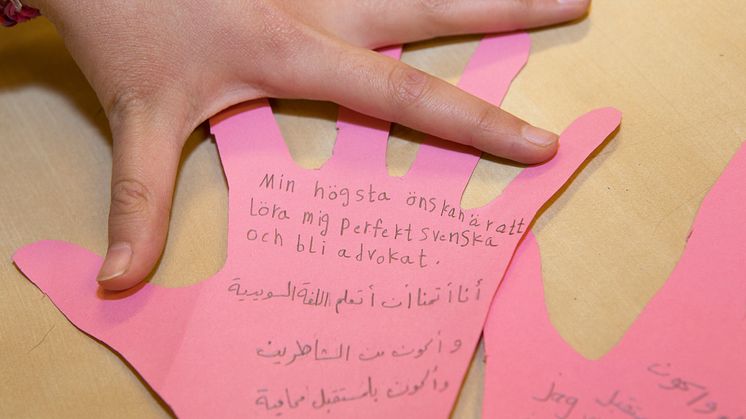 Min högsta önskan är att
löra mig perfekt svenska
och bli advokat.
أنا أتمنا أن أتعلم اللغة السويدية
و أكون من الشاطرين
وأكون بلمستقبل محامية
و اكون
Jag